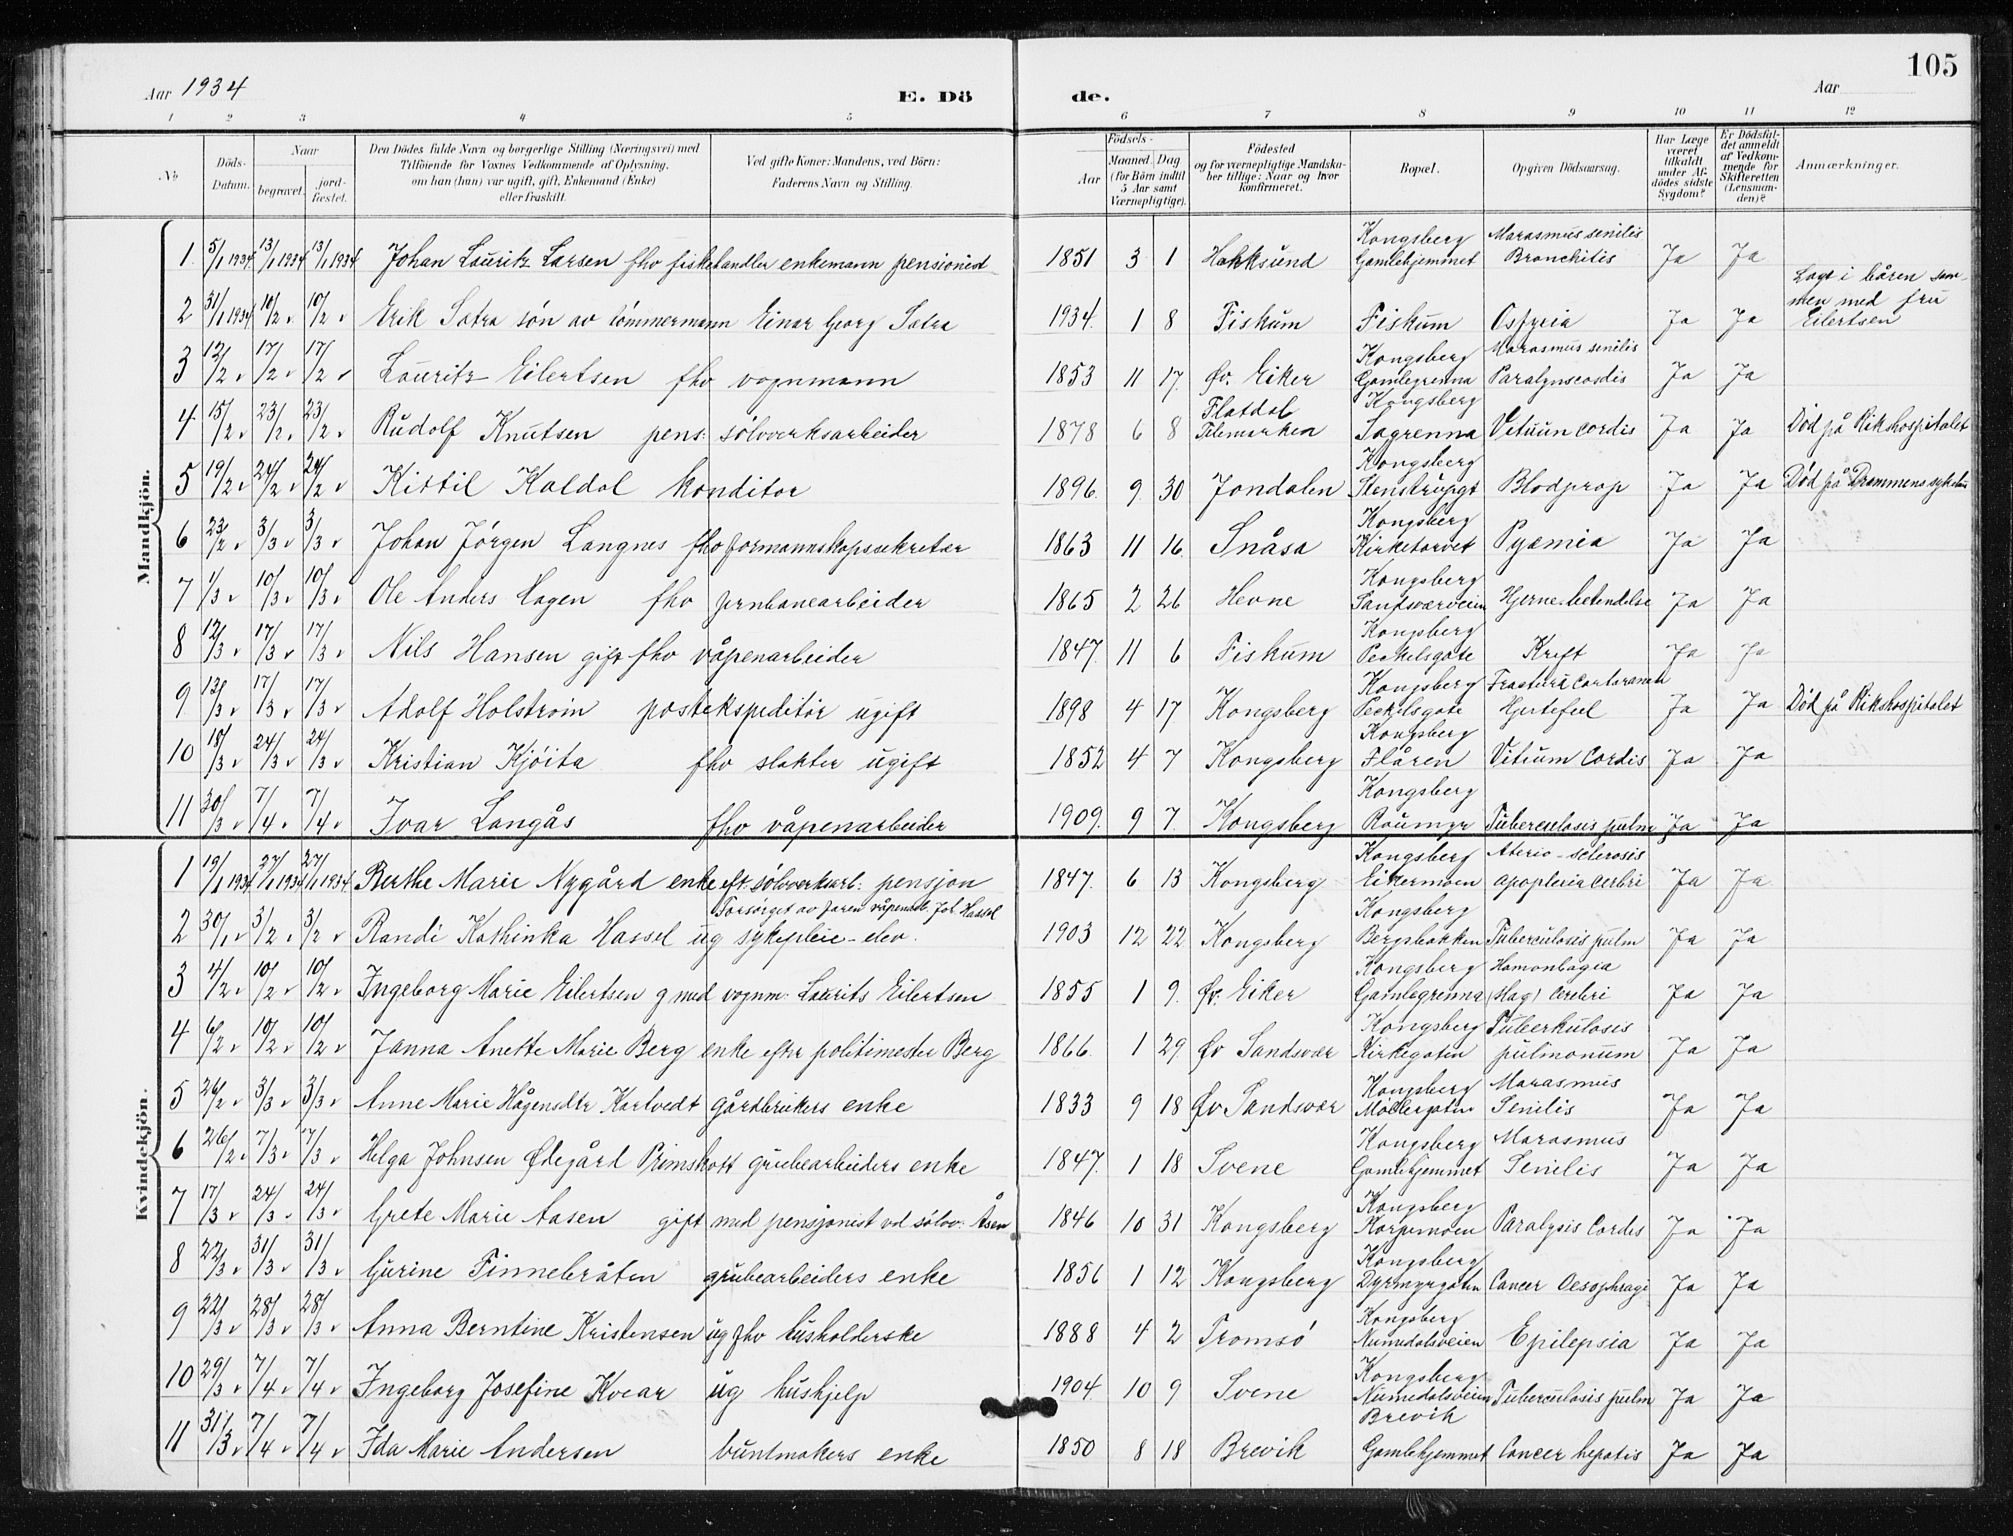 105
Aar 1934
E. Dö
de.
Aar
1 2 3 4 5 6 7 8 9 10 11 12
No
Döds-Datum.
Naar
begravet.
jord-fæstet.
Den Dödes fulde Navn og borgerlige Stilling (Næringsvei) med
Tilföiende for Voxnes Vedkommende af Oplysning,
om han (hun) var ugift, gift, Enkemand (Enke)
eller fraskilt.
Ved gifte Koner: Mandens, ved Börn:
Faderens Navn og Stilling.
Födsels-
Aar
Maaned. Dag
(for Börn indtil
5 Aar samt
Værnepligtige).
Födested
og for værnepligtige Mandska-
ber tillige: Naar og hvor
konfirmeret.
Bopæl.
Opgiven Dödsaarsag.
Har Læge
været
tilkaldt
under Af-
dödes sidste
Sygdom?
Er Dödsfal-
det anmeldt
af Vedkom-
mende for
Skifteretten
(Lensman-
den)?
Anmærkninger.
Mandkjön.
1 5/1 1934 13/1 1934 13/1 1934 Johan Lauritz Larsen fhv fiskehandler enkemann pensionist 1851 3 1 Hokksund Kongsberg Gamlehjemmet Marasmus senilis Bronchitis Ja Ja
2 31/1 1934 10/2 " 10/2 " Erik Satra søn av tømmermann Einar Georg Satra 1934. 1 8 Fiskum Fiskum Ja Ja Lagt i båren sam-
men med fru
Eilertsen
3 12/2 " 17/2 " 17/2 " Lauritz Eilertsen fhv vognmann 1853 11 17. Øv. Eiker Kongsberg Gamlegrenna Marasmus senilis Paralysscosdis Ja Ja
4 15/2 " 23/2 " 23/2 " Rudolf Knutsen pens: sølvverksarbeider 1878 6 8 Flatdal Telemarken Kongsberg Sagrenna Vitium cordis Ja Ja Død på Rikshospitalet
5 19/2 " 24/2 " 24/2 " Kittil Kaldal konditor 1896. 9. 30 Jondalen Kongsberg Stenstrupgt Blodprop Ja Ja Død på Drammens sykehus
6 23/2 " 3/3 " 3/3 " Johan Jørgen Langnes fhv formannskapssekretær 1863 11 16. Snåsa Kongsberg Kirketorvet Pyæmia Ja Ja
7 1/3 " 10/3 " 10/3 " Ole Anders Hagen fhv jernbanearbeider 1865 2 26 Hevne Kongsberg Sandsværveien Hjerne betendelse Ja Ja
8 12/3 " 17/3 " 17/3 " Nils Hansen gift fhv våpenarbeider 1847. 11 6 Fiskum Kongsberg Peckelsgate Kreft Ja Ja
9 13/3 " 17/3 " 17/3 " Adolf Holstrøm postekspeditør ugift 1898 4 17 Kongsberg Kongsberg Peckelsgate Hjertefeil Ja Ja Død på Rikshospitalet
10 18/3 " 24/3 " 24/3 " Kristian Kjøita fhv slakter ugift 1852 4 7 Kongsberg Kongsberg Flåren Vitium Cordis Ja Ja
11 30/3 " 7/4 " 7/4 " Ivar Langås fhv våpenarbeider 1909. 9 7. Kongsberg Kongsberg Raumyr Tuberculosis pulm Ja Ja
Kvindekjön.
1 19/1 1934 27/1 1934 27/1 1934. Berthe Marie Nygård enke eft. sølvverksarb: pensjon 1847. 6 13 Kongsberg Kongsberg Eikermoen Aterio-sclerosis apoplexia cerbri Ja Ja
Forsørget av faren våpenarb. Joh. Hassel
2 30/1 " 3/2 " 3/2 " Randi Kathinka Hassel ug sykepleie-elev. 1903 12 22 Kongsberg Kongsberg Bergsbakken Tuberculosis pulm Ja Ja
3 4/2 " 10/2 " 10/2 " Ingeborg Marie Eilertsen g med vognm: Laurits Eilertsen 1855 1 9. Øv. Eiker Kongsberg Gamlegrenna (Hag) cerebri Ja Ja
4 6/2 " 10/2 " 10/2 " Janna Anette Marie Berg enke efter politimester Berg 1866. 1 29. Øv Sandsvær Kongsberg Kirkegaten Tuberkulosis pulmonum Ja Ja
5 26/2 " 3/3 " 3/3 " Anne Marie Hågensdtr Karlvedt gårdbrukers enke 1833 9 18 Øv Sandsvær Kongsberg Møllergaten Marasmus Senilis Ja Ja
6 26/2 " 7/3 " 7/3 " Helga Johnsen Ødegård Primskott grubearbeiders enke 1847. 1 18 Svene Kongsberg Gamlehjemmet Marasmus Senilis Ja Ja
7 17/3 " 24/3 " 24/3 " Grete Marie Aasen gift med pensjonist vd sølvv. Åsen 1846 10 31 Kongsberg Kongsberg Korpemoen Paralysis Cordis Ja Ja
8 22/3 " 31/3 " 31/3 " Gurine Finnebråten grubearbeiders enke 1856 1 12 Kongsberg Kongsberg Dyrmyrgaten Cancer Oesophragi Ja Ja
9 22/3 " 28/3 " 28/3 " Anna Berntine Kristensen ug fhv husholderske 1888 4 2 Tromsø Kongsberg Numedalsveien Epilepsia Ja Ja
10 29/3 " 7/4 " 7/4 " Ingeborg Josefine Kvear ug hushjelp 1904. 10 9 Svene Kongsberg Numedalsveien Tuberculosis pulm Ja Ja
11 31/3 " 7/4 " 7/4 " Ida Marie Andersen buntmakers enke 1850 8 18 Brevik Brevik Gamlehjemmet Cancer hepatis Ja Ja